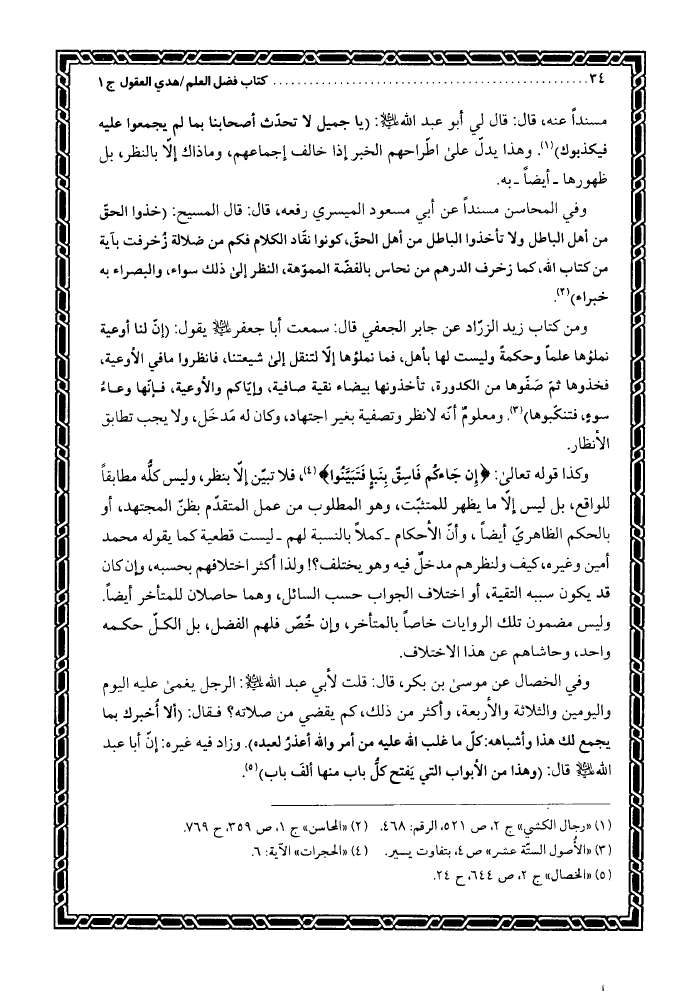 ٣٤ ........................................................ كتاب فضل العلم/هدي العقول ج ١
مسنداً عنه، قال: قال لي أبو عبد الله عليه السلام: (يا جميل لا تحدّث أصحابنا بما لم يجمعوا عليه
فيكذبوك)(١). وهذا يدلّ علىٰ اطّراحهم الخبر إذا خالف إجماعهم، وماذاك إلّا بالنظر، بل
ظهورها ـ أيضاً ـ به.
وفي المحاسن مسنداً عن أبي مسعود الميسري رفعه، قال: قال المسيح: (خذوا الحقّ
من أهل الباطل ولا تأخذوا الباطل من أهل الحقّ، كونوا نقّاد الكلام فكم من ضلالة زُخرفت بآية
من كتاب الله، كما زخرف الدرهم من نحاس بالفضّة المموّهة، النظر إلىٰ ذلك سواء، والبصراء به
خبراء)(٢).
ومن كتاب زيد الزرّاد عن جابر الجعفي قال: سمعت أبا جعفر عليه السلام يقول: (إنّ لنا أوعية
نملؤها علماً وحكمةً وليست لها بأهل، فما نملؤها إلّا لتنقل إلىٰ شيعتنا، فانظروا مافي الأوعية،
فخذوها ثمّ صَفّوها من الكدورة، تأخذونها بيضاء نقية صافية، وإيّاكم والأوعية، فـإنّها وعـاءُ
سوءٍ، فتنكّبوها)(٣). ومعلومٌ أنّه لانظر وتصفية بغير اجتهاد، وكان له مَدخَل، ولا يجب تطابق
الأنظار.
وكذا قوله تعالىٰ: ﴿إِن جَاءَكُم فَاسِقٌ بِنَبَإٍ فَتَبَيَّنُوا﴾(٤)، فلا تبيّن إلّا بنظر، وليس كلُّه مطابقاً
للواقع، بل ليس إلّا ما يظهر للمتثبّت، وهو المطلوب من عمل المتقدّم بظنّ المجتهد، أو
بالحكم الظاهريّ أيضاً ، وأنّ الأحكام ـ كملاً بالنسبة لهم ـ ليست قطعية كما يقوله محمد
أمين وغيره، كيف ولنظرهم مدخلٌ فيه وهو يختلف؟! ولذا أكثر اختلافهم بحسبه، وإن كان
قد يكون سببه التقية، أو اختلاف الجواب حسب السائل، وهما حاصلان للمتأخر أيضاً.
وليس مضمون تلك الروايات خاصاً بالمتأخر، وإن خُصّ فلهم الفضل، بل الكـلّ حكـمه
واحد، وحاشاهم عن هذا الاختلاف.
وفي الخصال عن موسىٰ بن بكر، قال: قلت لأبي عبد الله عليه السلام: الرجل يغمىٰ عليه اليوم
واليومين والثلاثة والأربعة، وأكثر من ذلك، كم يقضي من صلاته؟ فـقال: (ألا أُخبرك بما
يجمع لك هذا وأشباهه: كلّ ما غلب الله عليه من أمر والله أعذرُ لعبده). وزاد فيه غيره: إنّ أبا عبد
الله عليه السلام قال: (وهذا من الأبواب التي يَفتح كلُّ باب منها ألفَ باب)(٥).
(١) «رجال الكشي» ج ٢، ص ٥٢١، الرقم: ٤٦٨. (٢) «المحاسن» ج ١، ص ٣٥٩، ح ٧٦٩.
(٣) «الأُصول الستّة عشر» ص ٤، بتفاوت يسير. (٤) «الحجرات» الآية: ٦.
(٥) «الخصال» ج ٢، ص ٦٤٤، ح ٢٤.